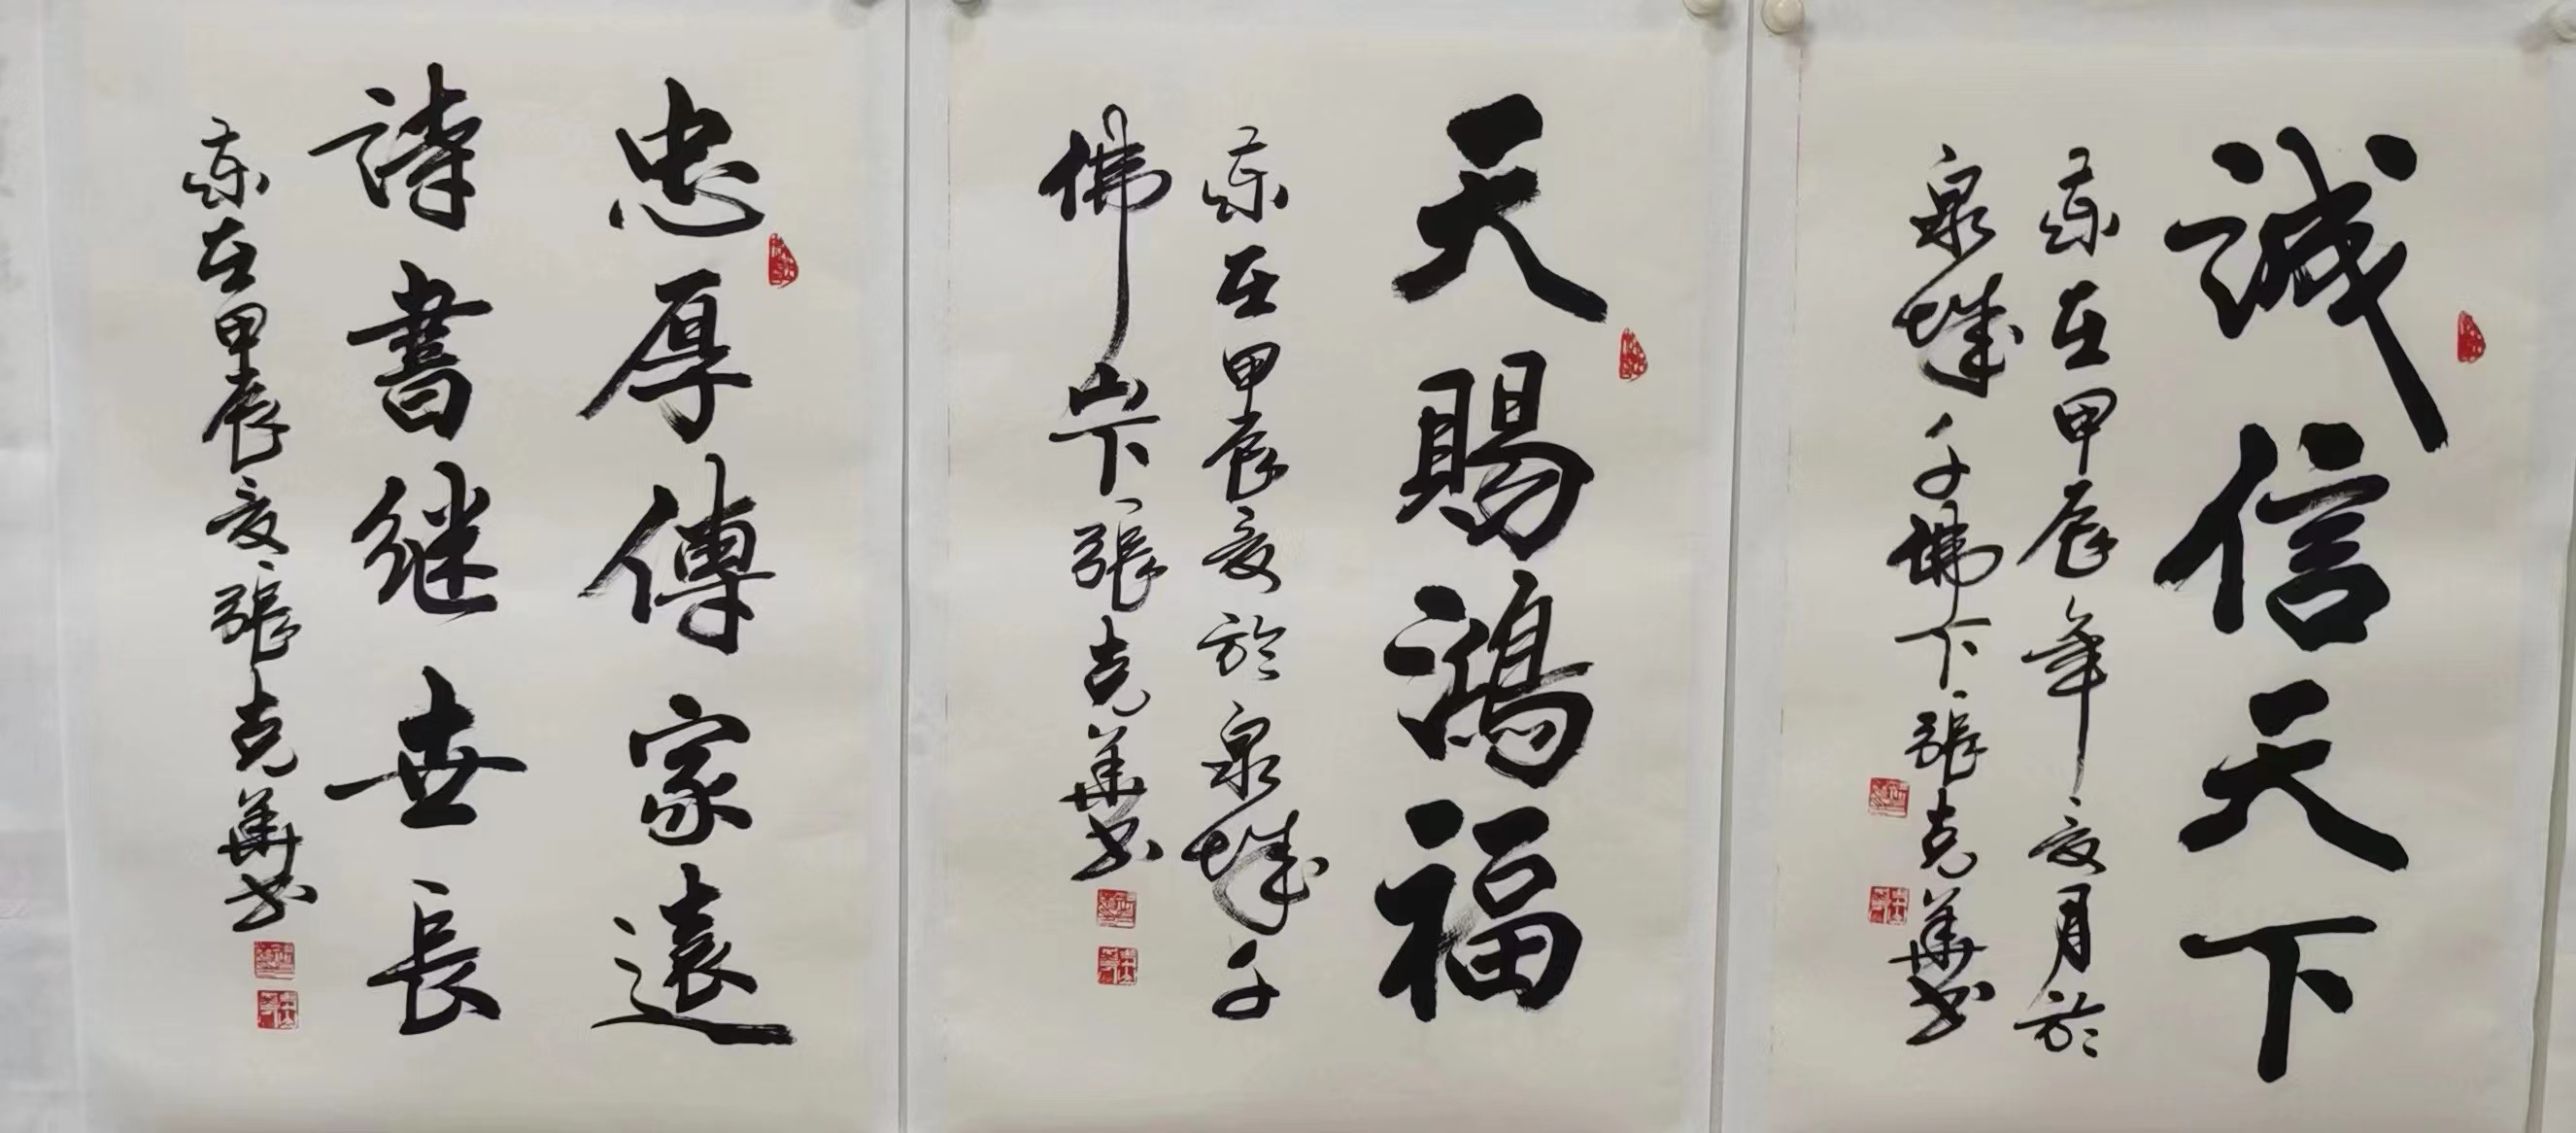 誠信天下
歲在甲辰年夏月於
泉城千佛下張克華書
天賜鴻福
歲在甲辰夏於泉城千
佛山下張克華書
忠厚傳家遠
詩書继世長
歲在甲辰夏張克華書